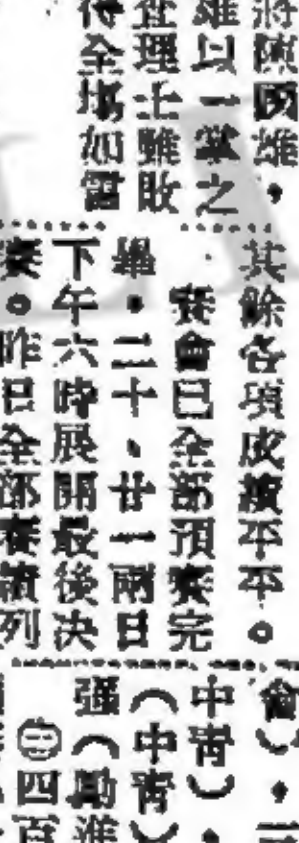 將陳國雄，
雄以一掌之
查理士雖敗
得全場如雷
其餘各項成績平平。
賽會已全部預賽完
畢。二十、廿一兩日
下午六時展開最後决
賽。昨日全部賽績列
中靑）。
（中靑）
强（勵進
四百